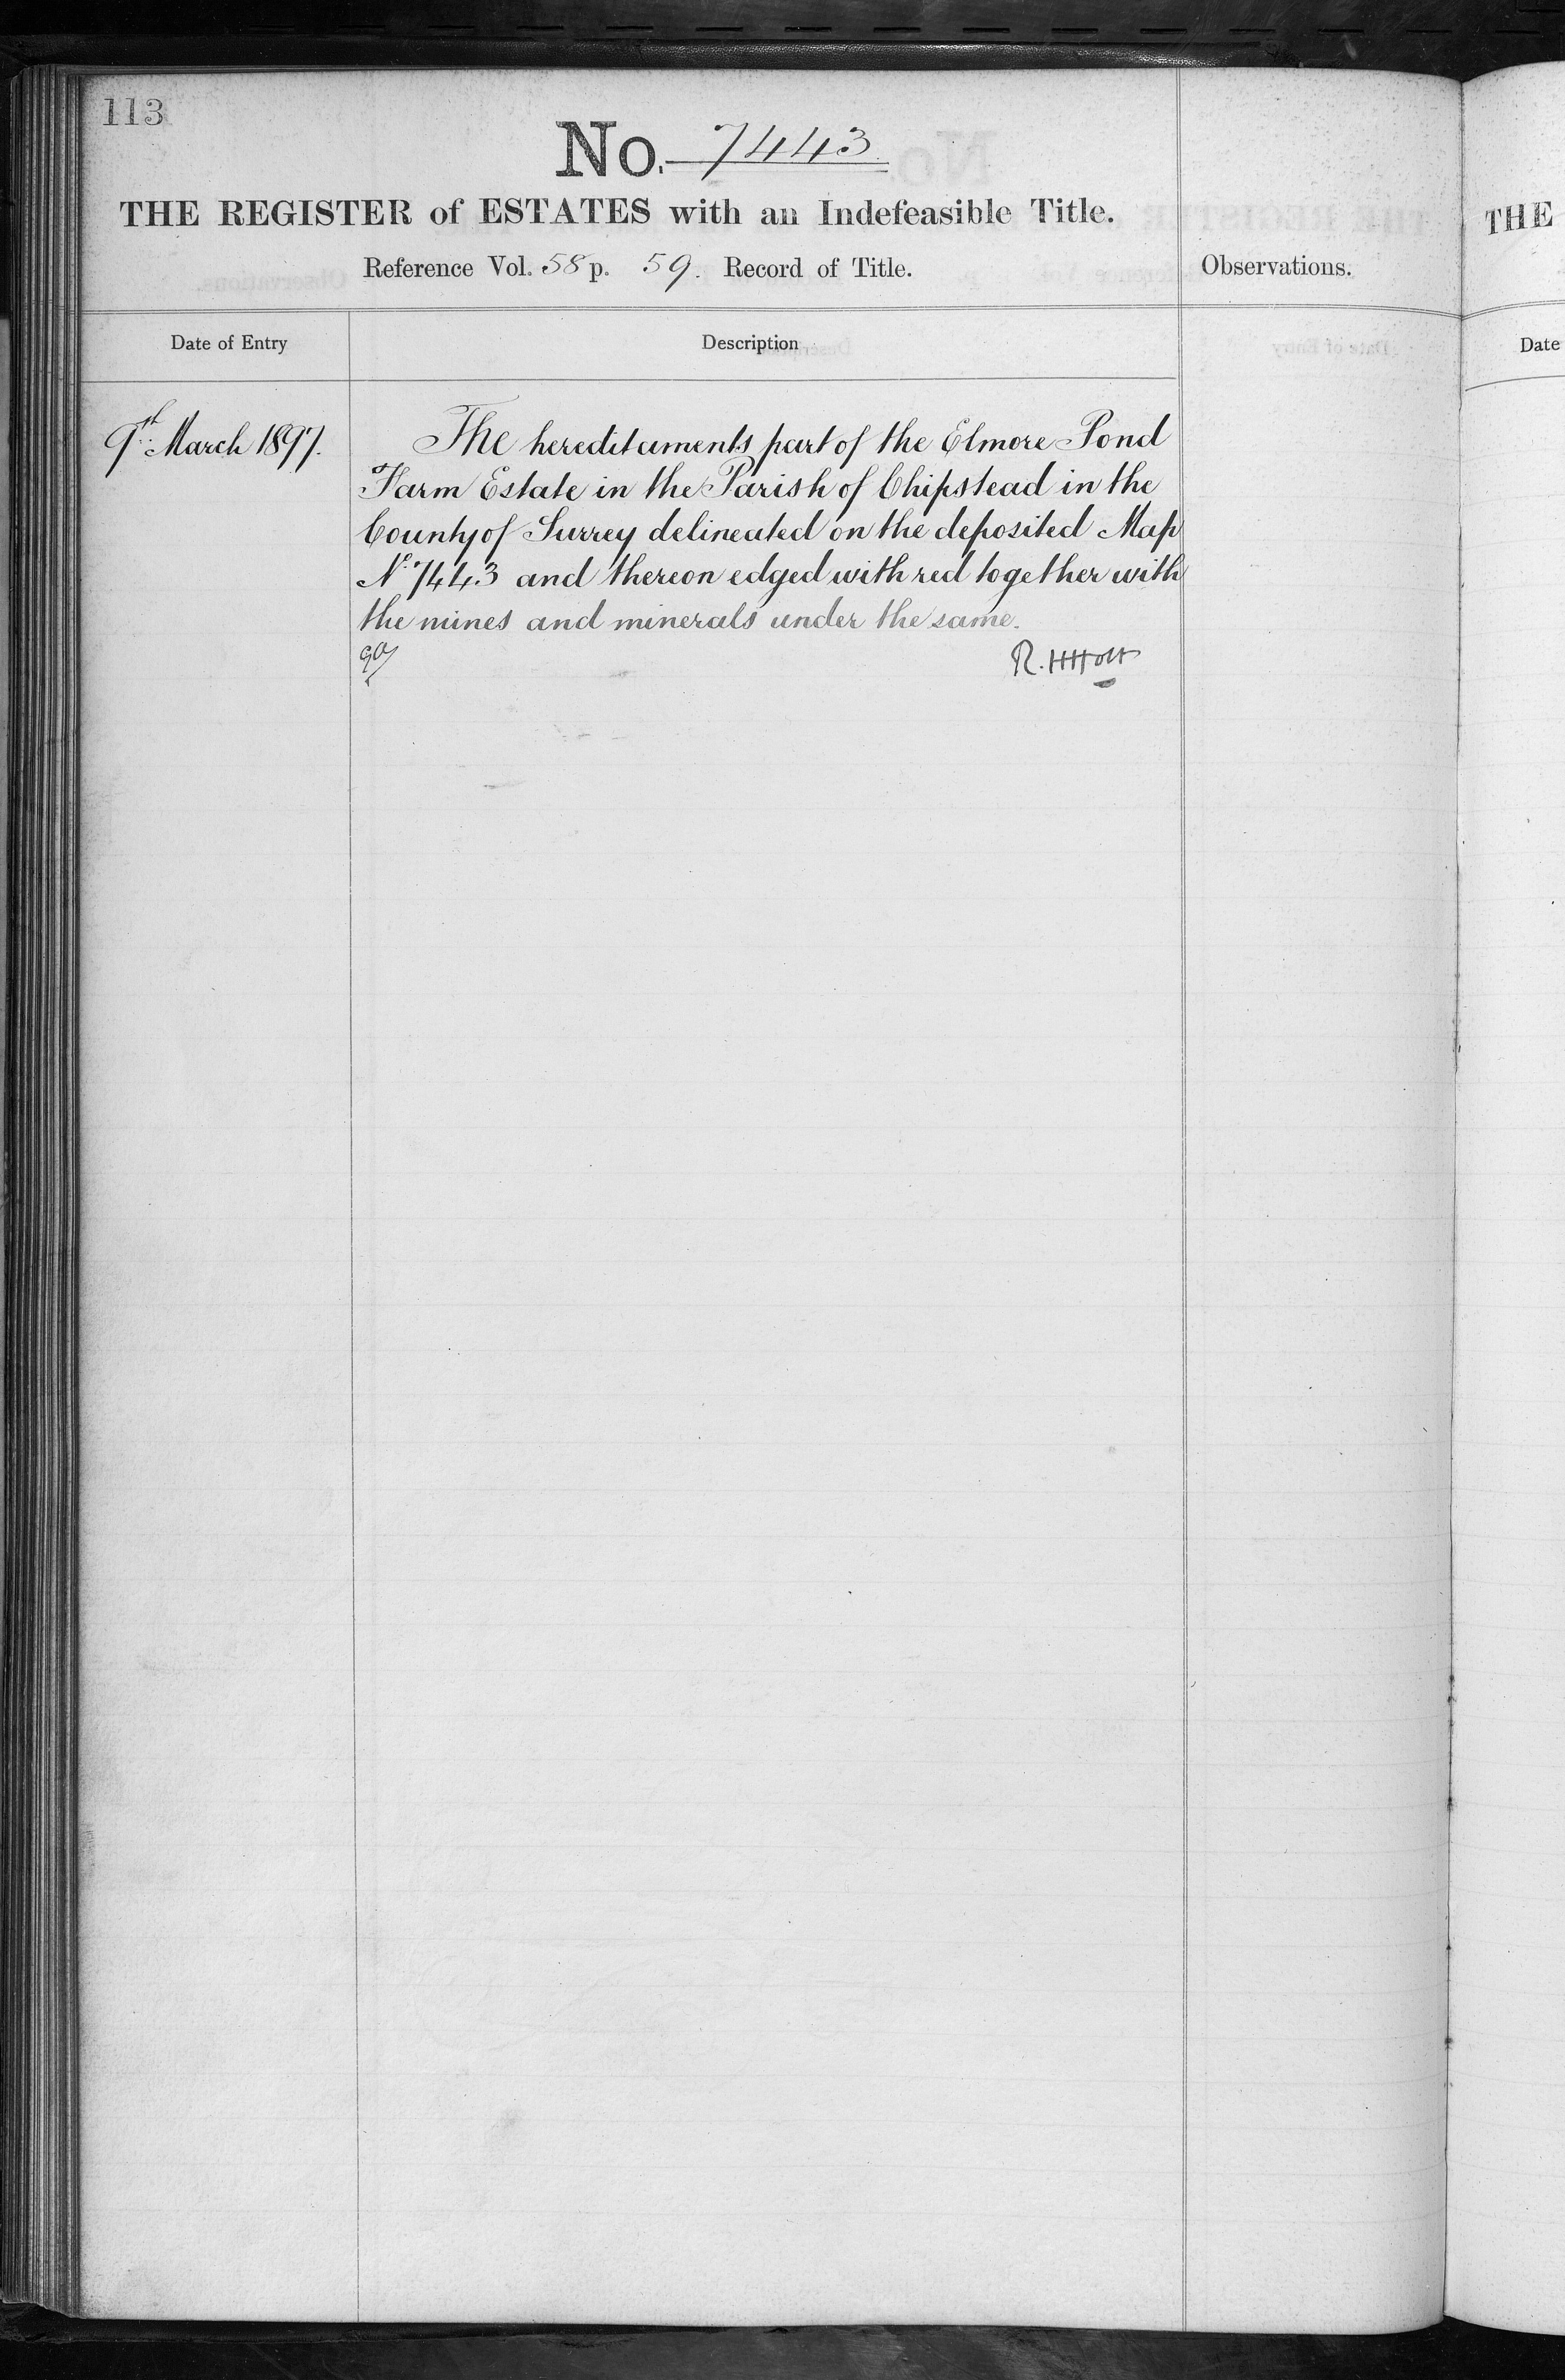 113
No. 7443
THE REGISTER of ESTATES with an Indefeasible Title.
Reference Vol. 58 p. 59. Record of Title.
Observations.
Date of Entry
Description
9th March 1897.
The hereditaments part of the Elmore Pond
Farm Estate in the Parish of Chipstead in the
County of Surrey delineated on the deposited Map
No. 7443 and thereon edged with red together with
the mines and minerals under the same.
R. H Holt
THE
Date